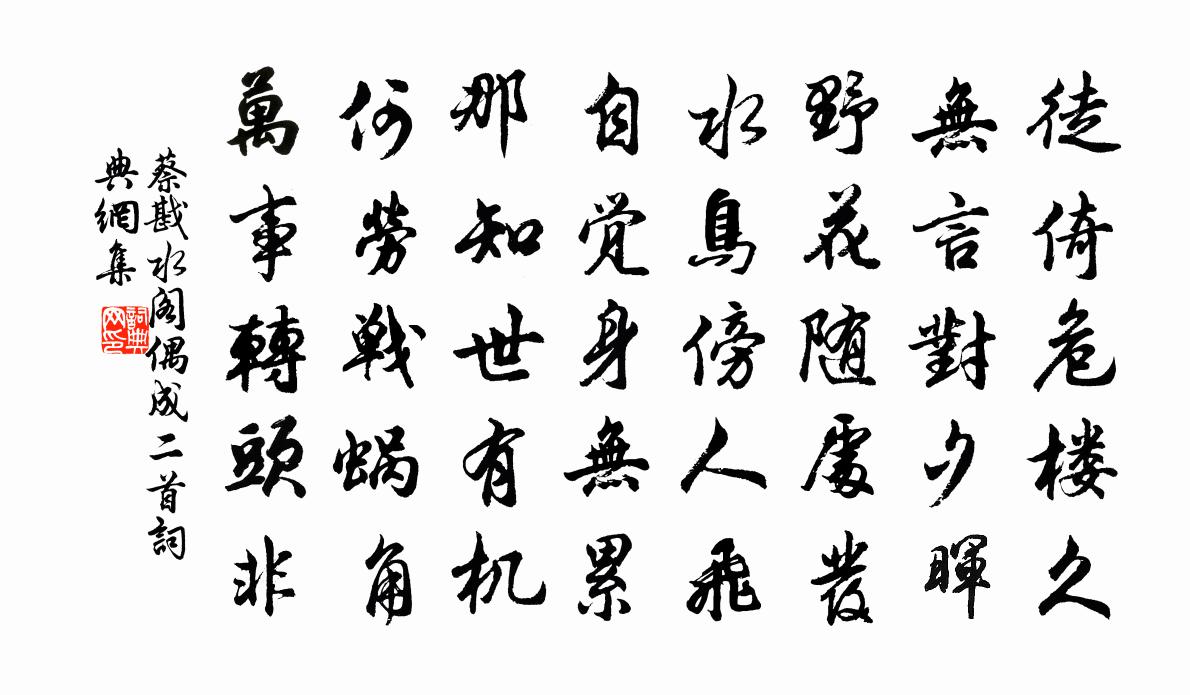 徒倚危楼久
無言對夕暉
野花随處發
水鳥傍人飛
自覚身無累
那知世有机
何勞戦蝸角
萬事轉頭非
蔡戡水阁偶成二首詞
典網集
詞典
网印